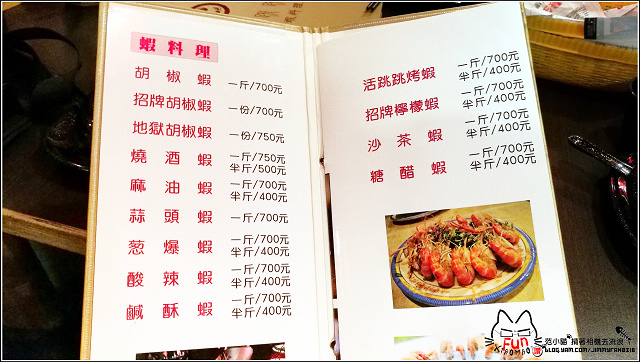 蝦料理
胡椒蝦 一斤/700元
招牌胡椒蝦 一份/700元
地獄胡椒蝦 一份/750元
燒酒蝦 一斤/750元
半斤/500元
麻油蝦 一斤/700元
半斤/400元
蒜頭蝦 一斤/700元
葱爆蝦 一斤/700元
半斤/400元
酸辣蝦 一斤/700元
半斤/400元
鹹酥蝦 一斤/700元
半斤/400元
活跳跳烤蝦 一斤/700元
半斤/400元
招牌檸檬蝦 一斤/700元
半斤/400元
沙茶蝦 一斤/700元
半斤/400元
糖醋蝦 一斤/700元
半斤/400元
FUN
范小貓 揹著相機去流浪